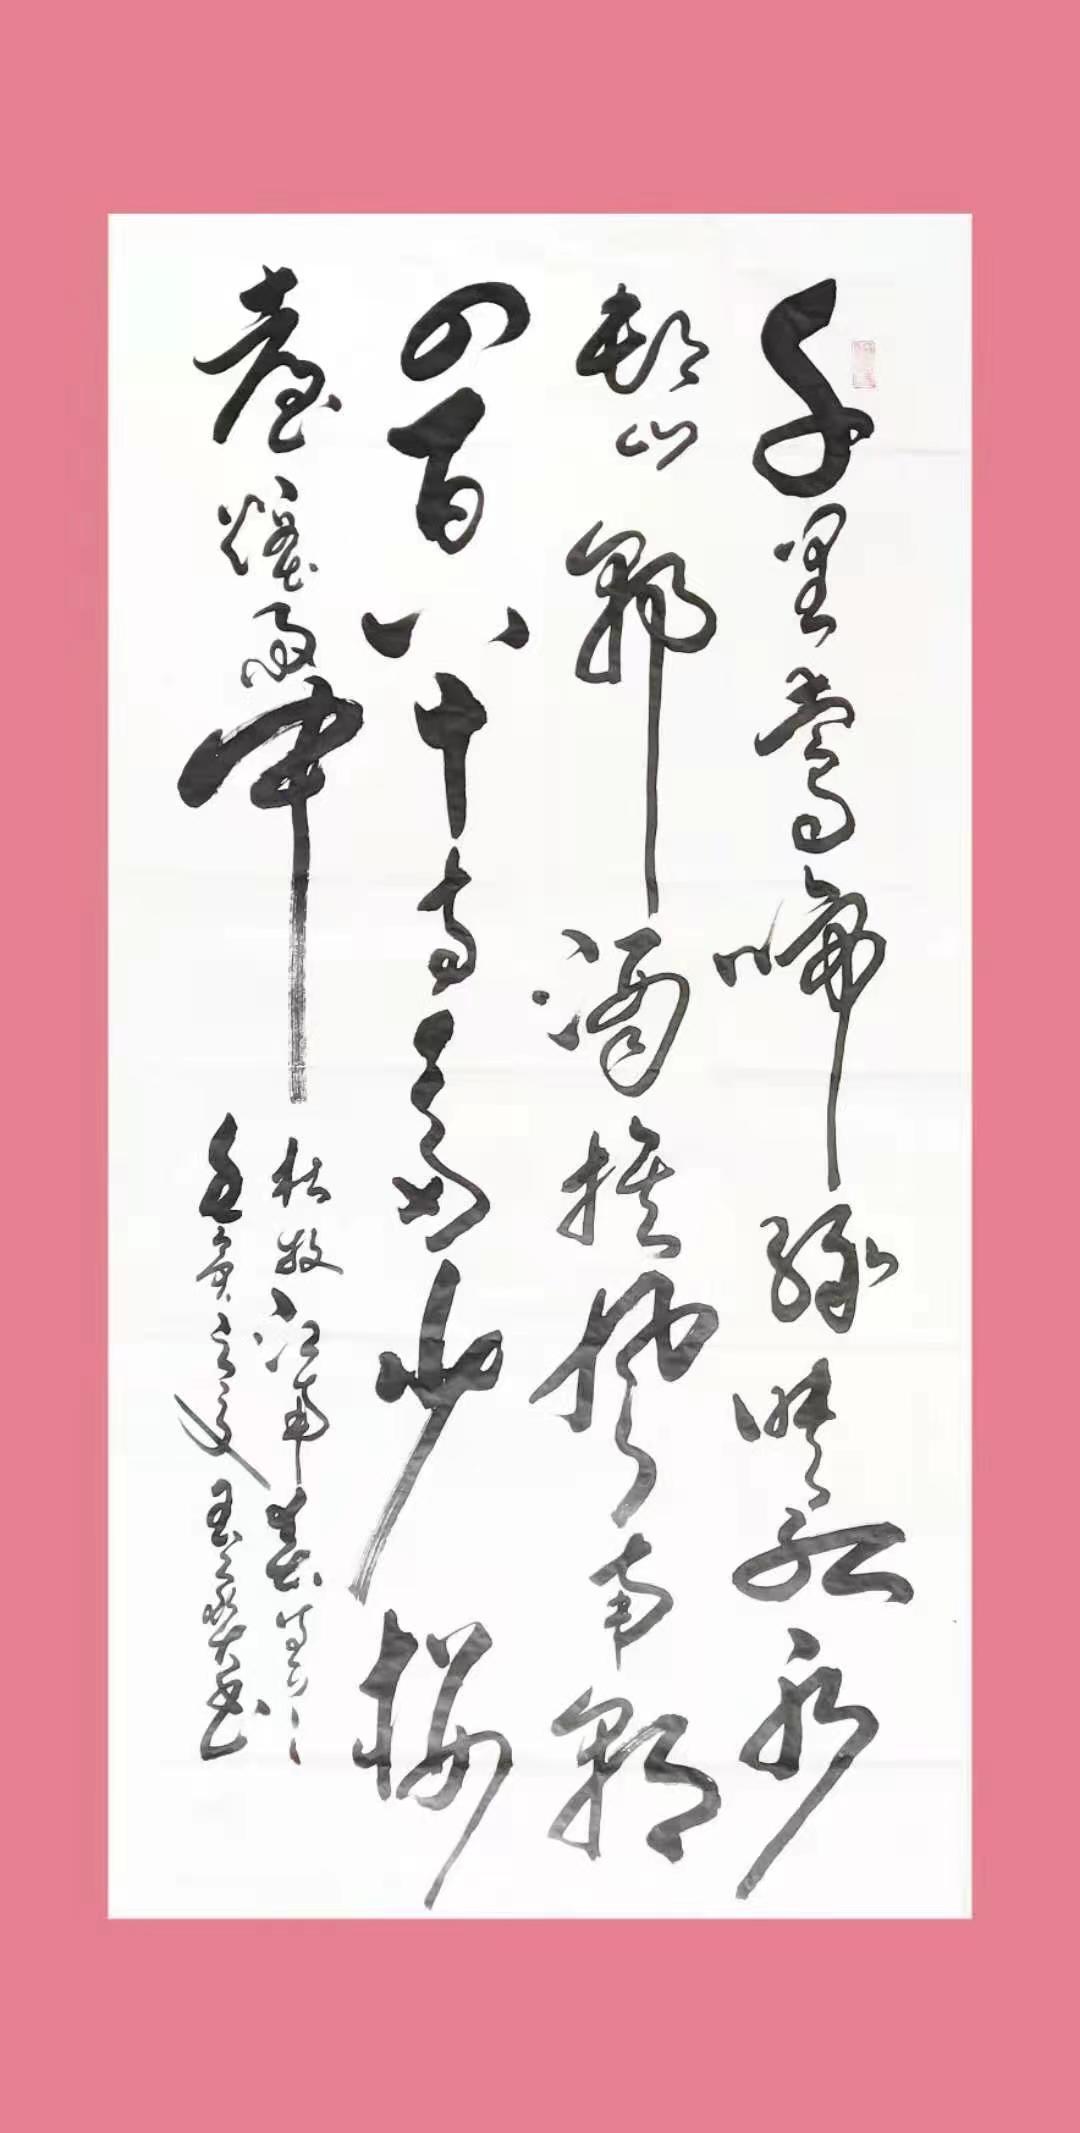 千里莺啼绿映红水
村山郭酒旗风南朝
四百八十寺多少楼
臺烟雨中
杜牧江南春诗
壬寅之夏